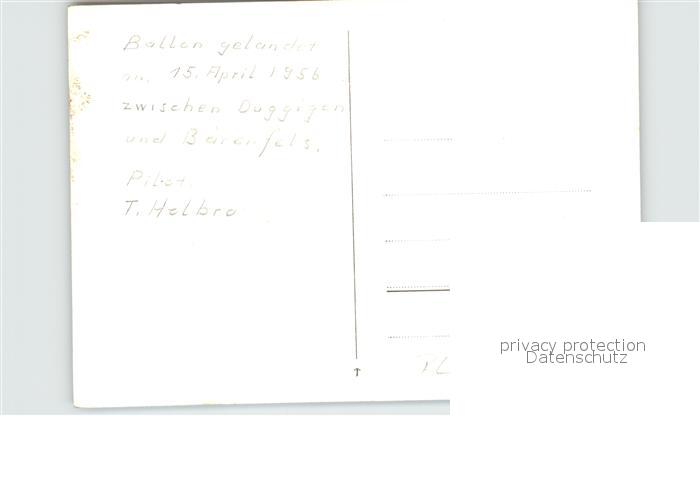 Ballon gelandet
am 15. April 1956
zwischen Duggigen
und Bärenfels.
Pilot.
T. Helbra
privacy protection
Datenschutz